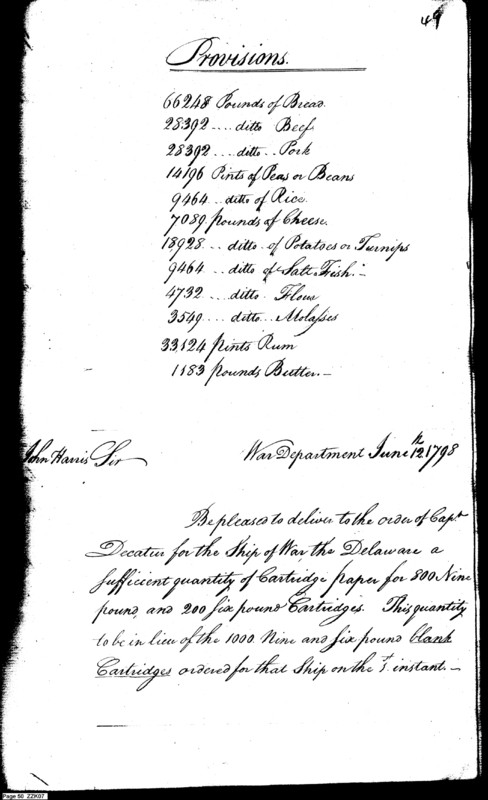 49
Provisions.
66248 Pounds of Bread
28392 .... ditto Beef
28392 .... ditto .. Pork
14196 Pints of Peas or Beans
9464 .. ditto of Rice
7089 pounds of Cheese.
18928 .. ditto of Potatoes or Turnips
9464 ... ditto of Salt Fish. –
4732 ... ditto Flour
3549 ... ditto ... Molasses
33124 pints Rum
1183 pounds Butter. –
John Harris Sir War Department June 12th 1798
Be pleased to deliver to the order of Capt.
Decatur for the Ship of War, the Delaware a
sufficient quantity of Cartridge paper for 800 Nine
pound, and 200 six pound Cartridges. This quantity
to be in lieu of the 1000 Nine and six pound blank
Cartridges ordered for that Ship on the instant. –
Page 50 ZZK07